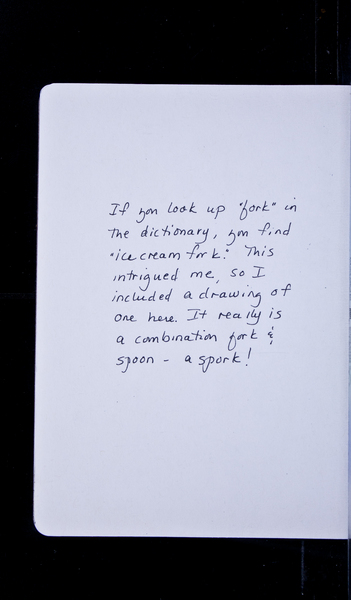 If you look up "fork" in
the dictionary, you find
"ice cream fork." This
intrigued me, so I
included a drawing of
one here. It really is
a combination fork &
spoon - a spork!